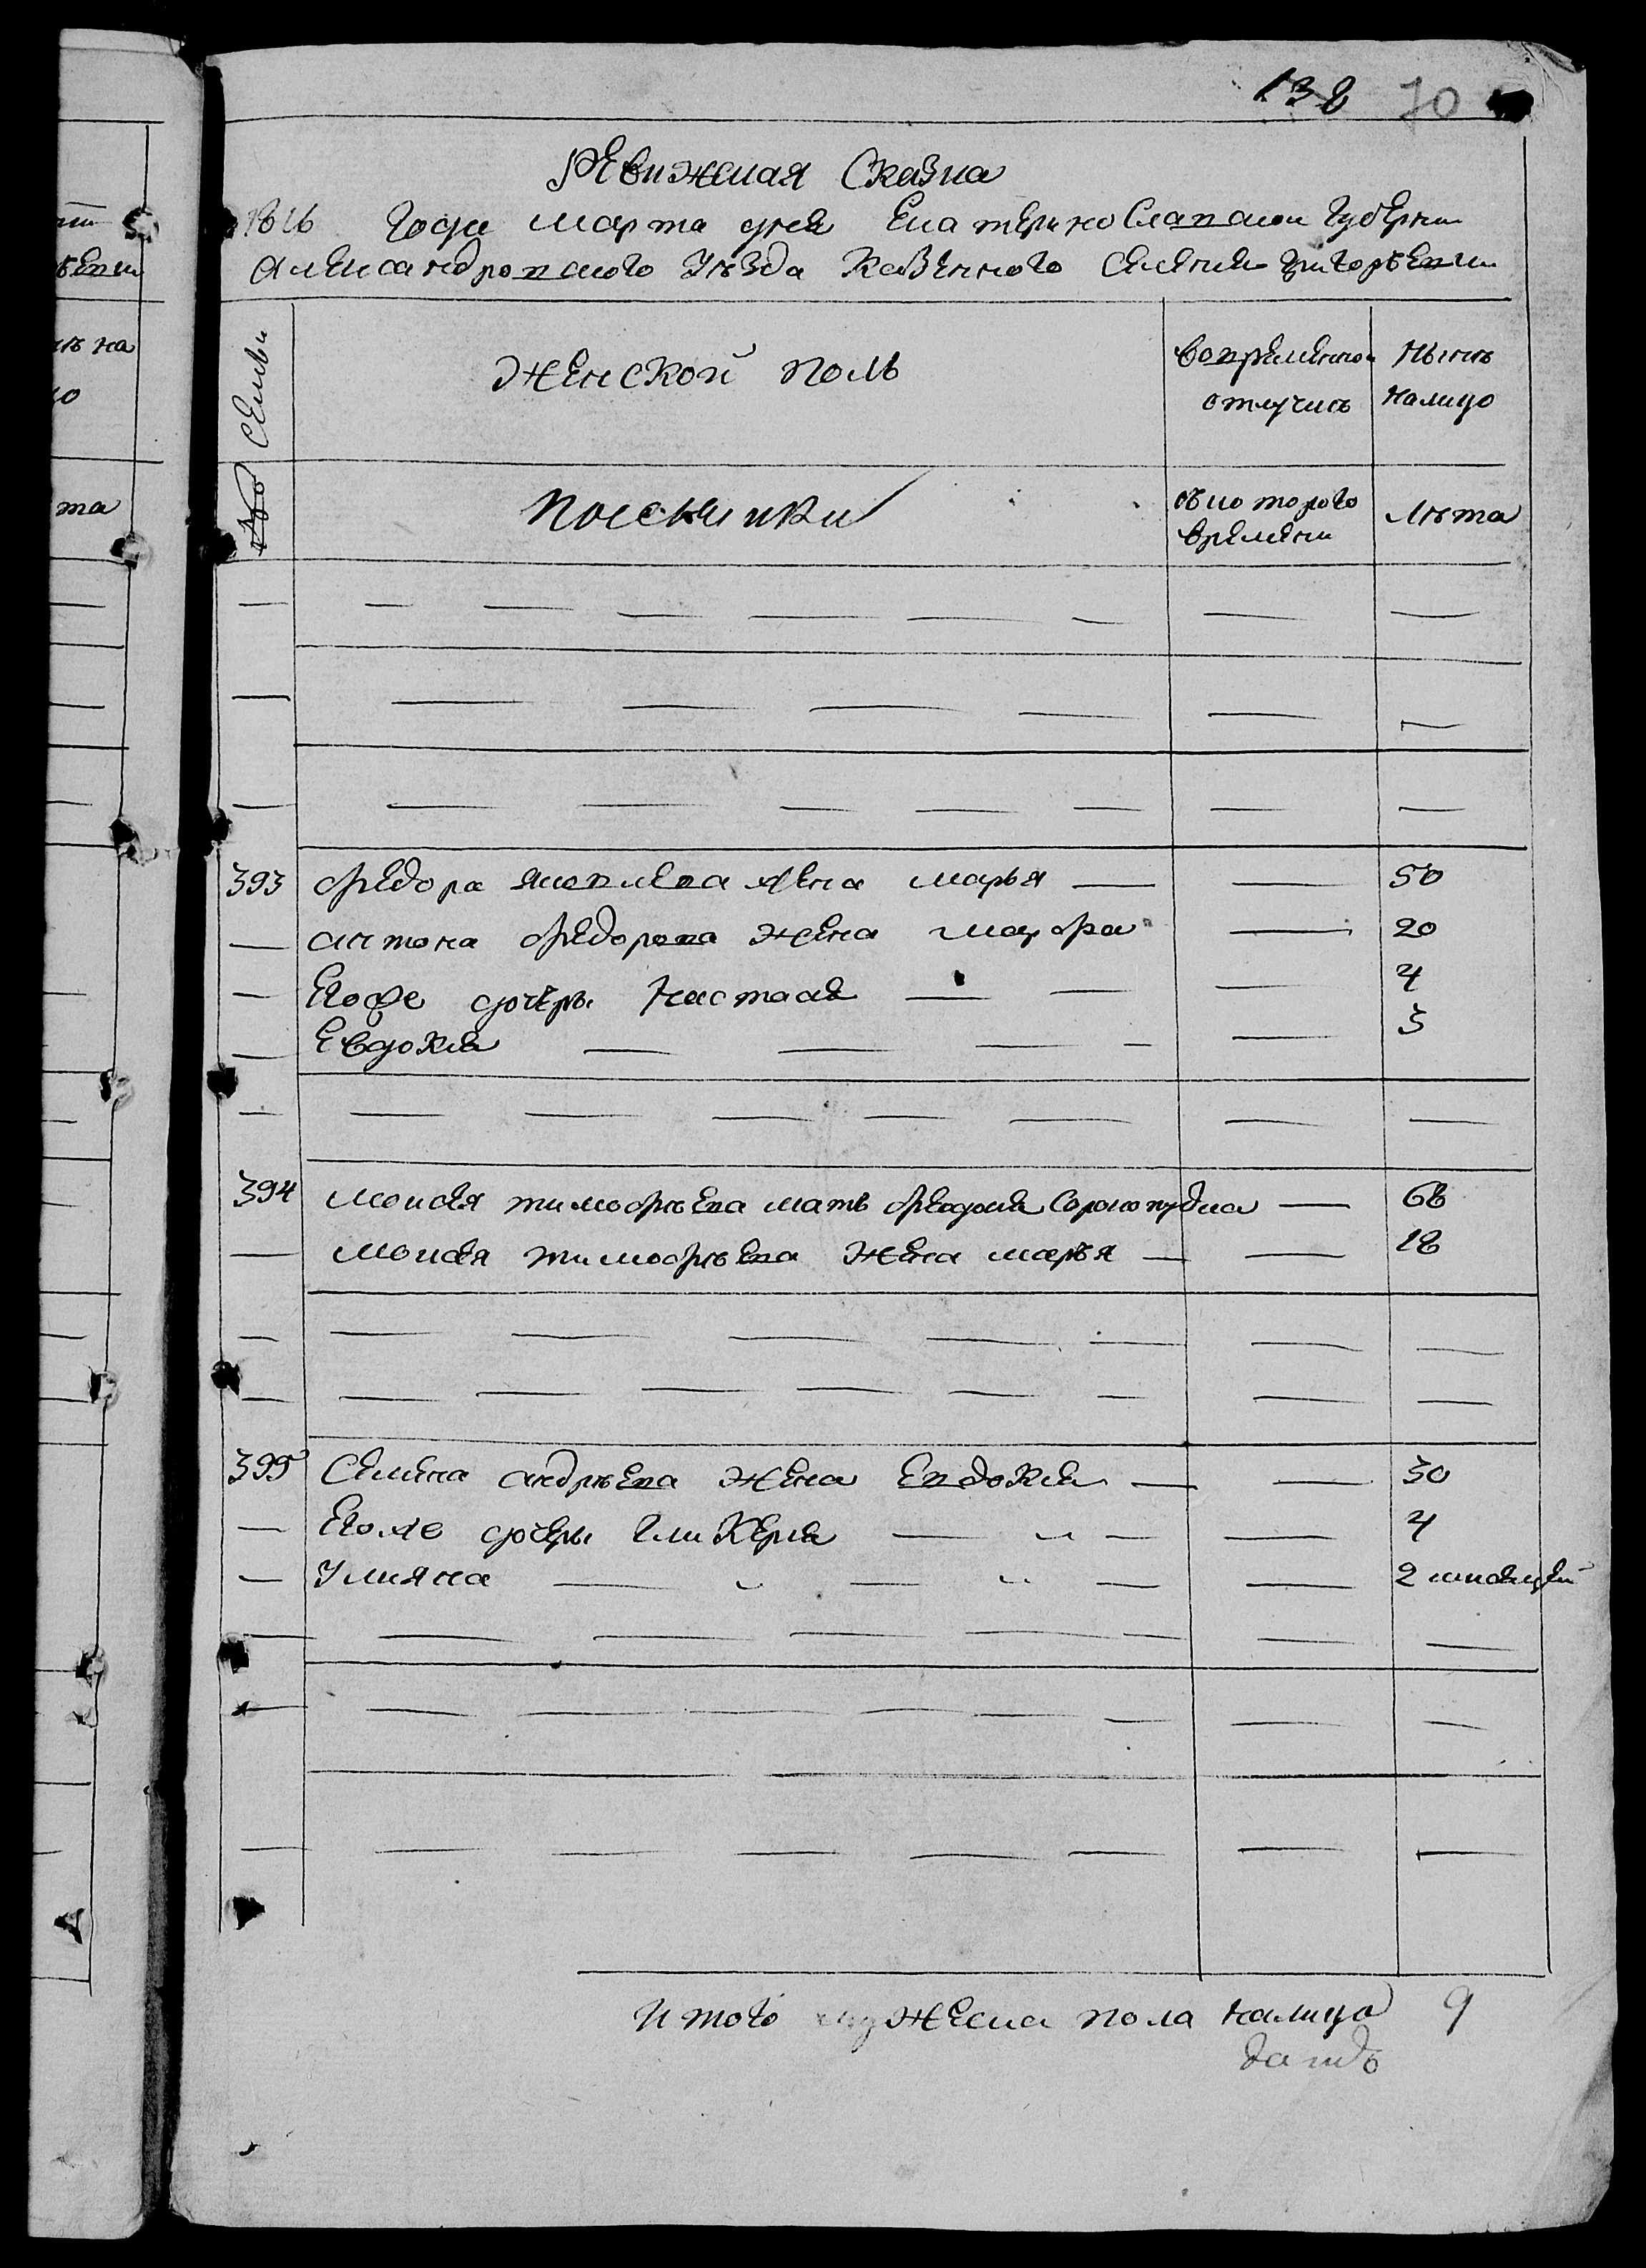 138 70
Ревижская Сказка
1816 года марта дня Екатеринославской Губернии
Александровского Уезда Казенного Селения Григорьевки
№ Семьи
Женской поль
Вовременной отлучкѣ
Нынѣ налицо
съ которого времени
Лѣта
393 Федора Яковлева жена марья — — 50
— антона Федорова жена марфа — 20
— Егоже дочери Настася — — — 4
— Евдокия — — — — — 3
394 Моисея тимофѣева мать Федосия Сорокопудка — 68
— Моисея тимофѣева жена марья — — 18
395 Семена андрѣева жена Евдокия — — 30
— Егоже дочери Гликерия — — — 4
— Улияна — — — — 2 месяцей
Итого женска пола налицо 9